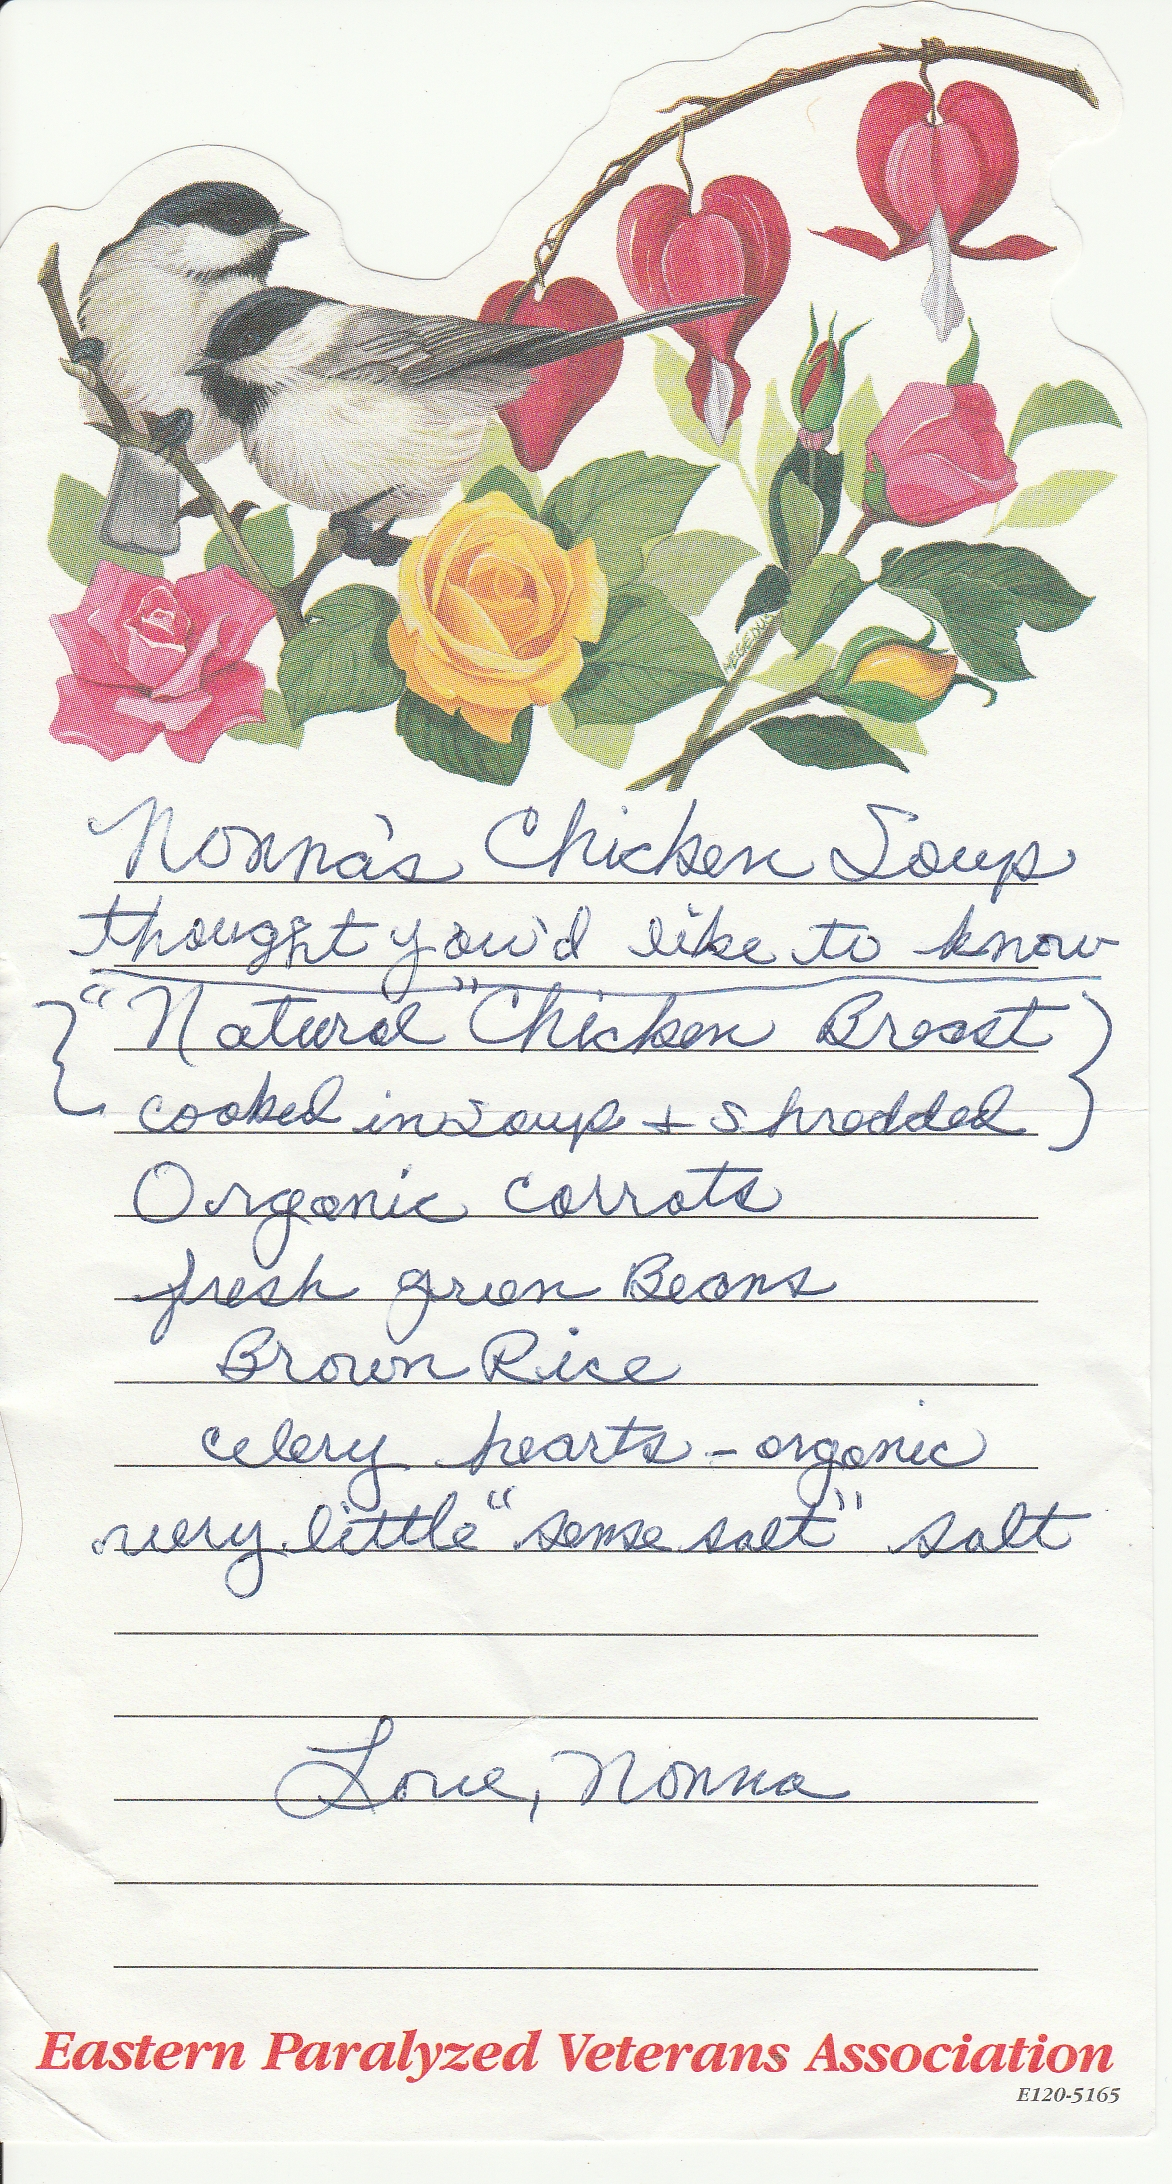 HEGEDUS
Nonna's Chicken Soup
thought you'd like to know
"Natural" Chicken Breast
cooked in soup + shredded
Organic carrots
fresh green Beans
Brown Rice
celery hearts - organic
very little "sense salt" salt
Love, Nonna
Eastern Paralyzed Veterans Association
E120-5165